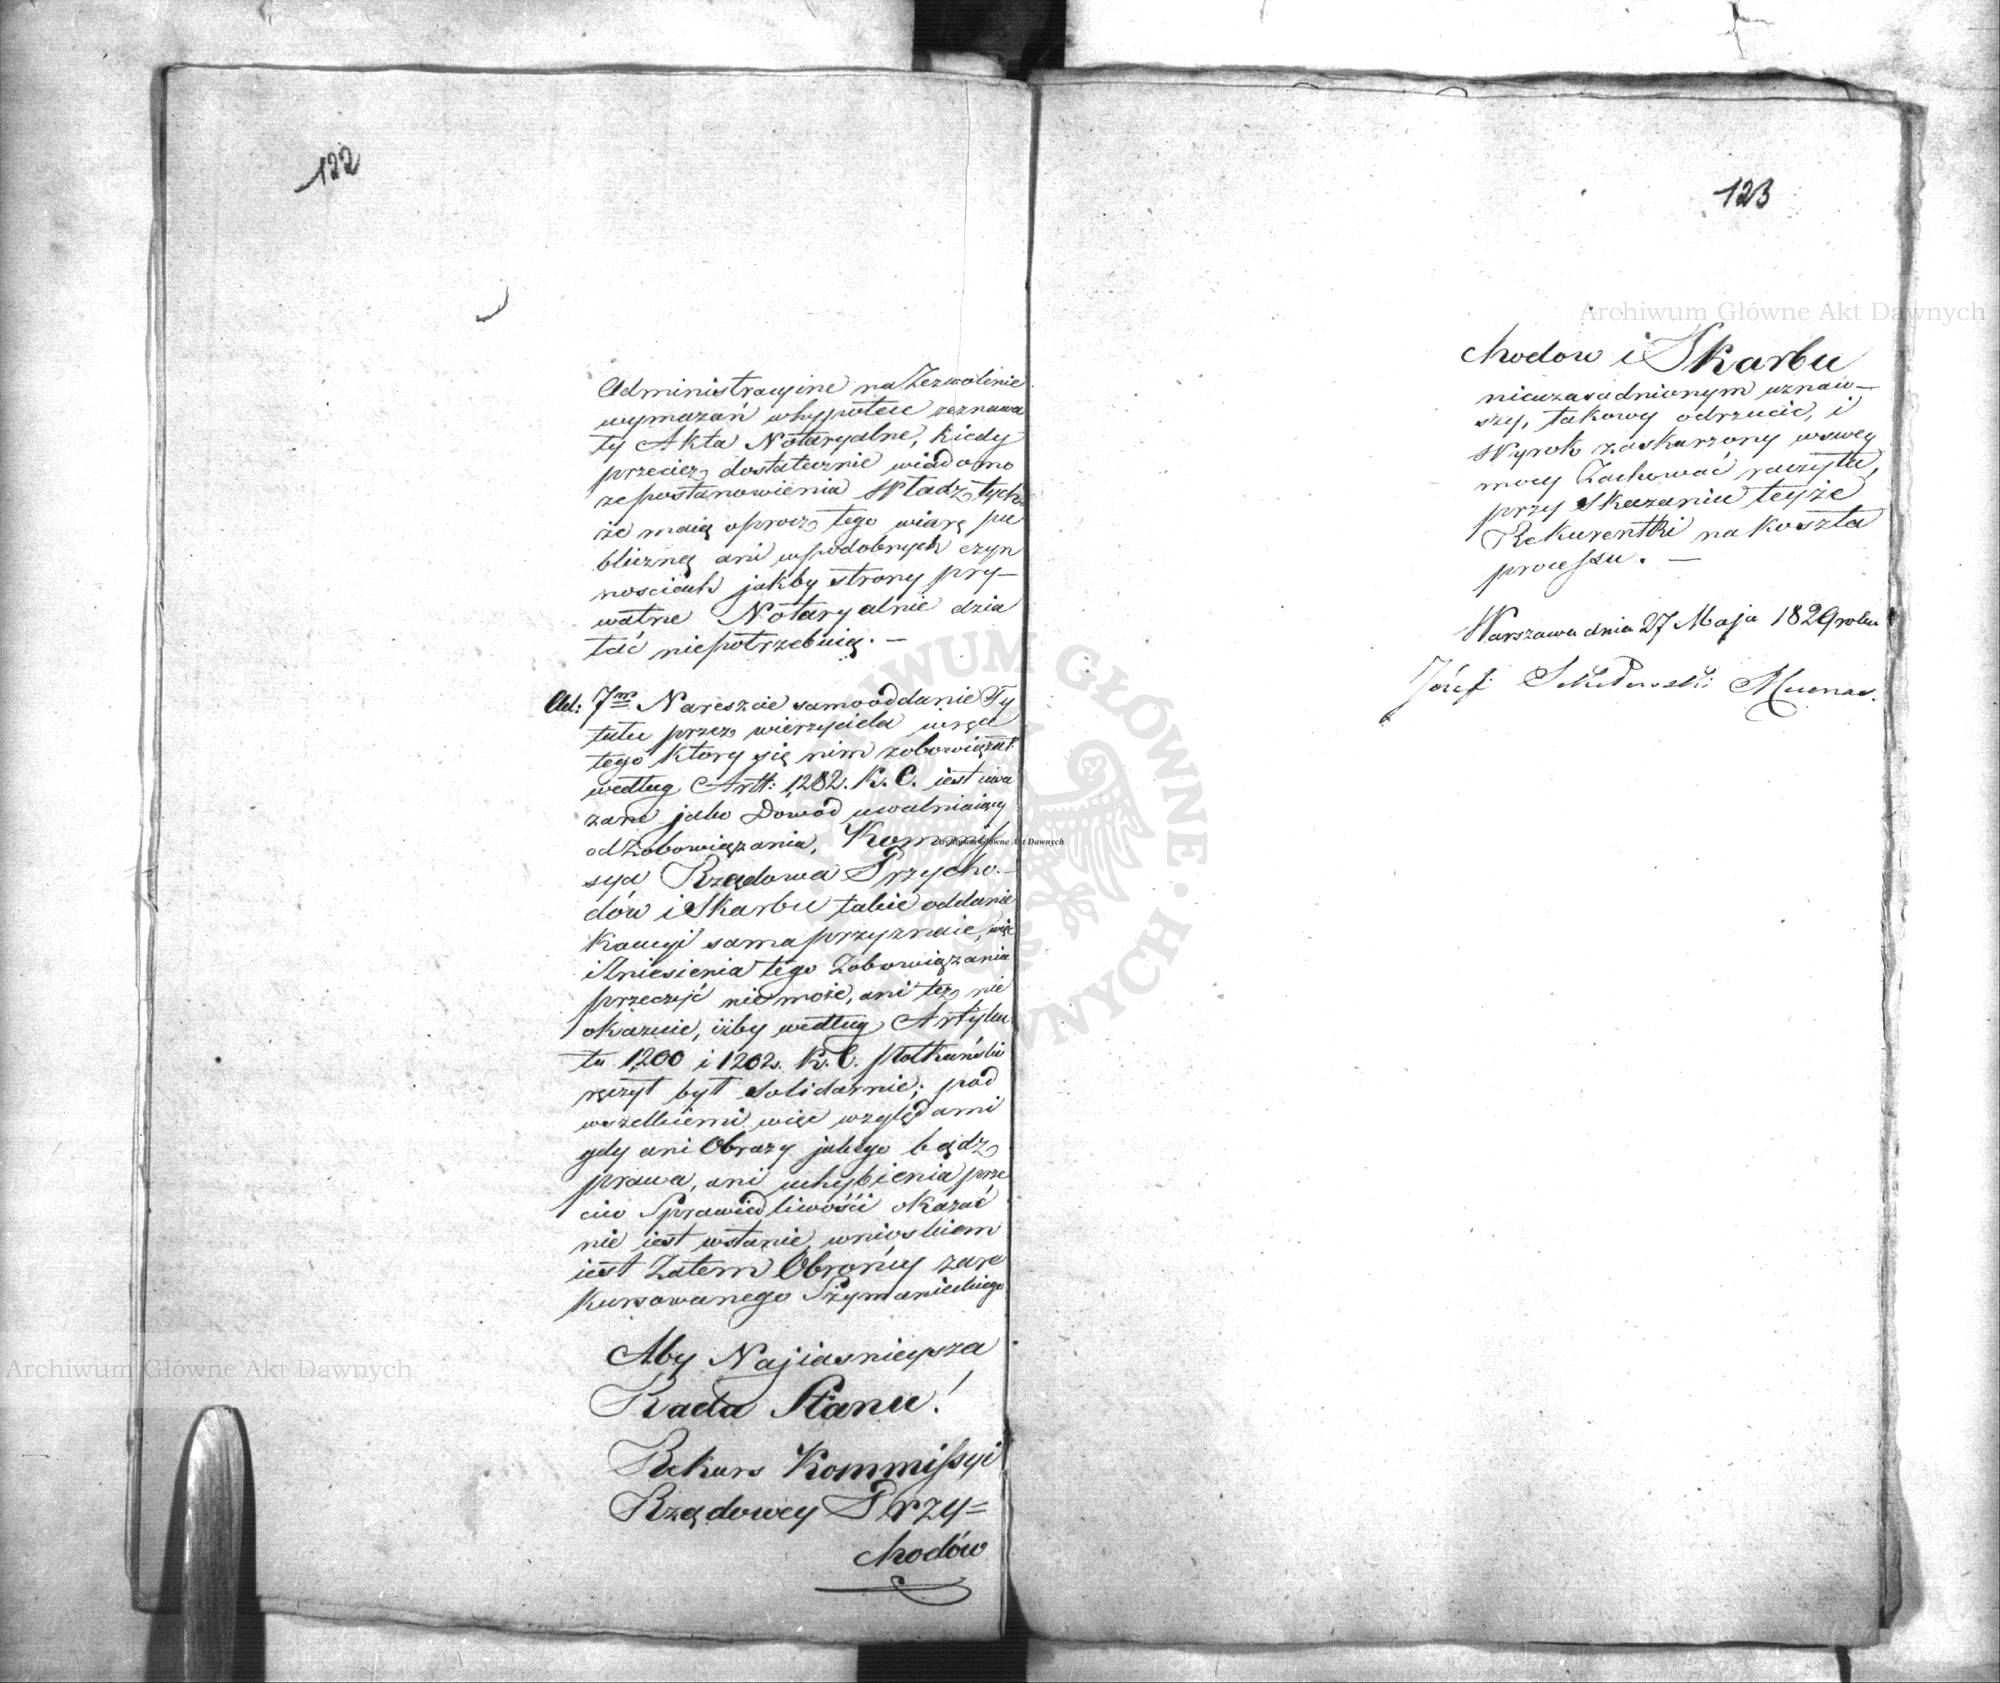 122
Administracyine na Zezwolenie
wymazań w hypotece zeznawa
ły Akta Notaryalne, kiedy
przecież dostatecznie wiadomo
że postanowienia Władz tych
że maią oprocz tego wiarę pu
bliczną ani w podobnych czyn
nosciach jakby strony pry-
watne Notaryalnie dzia
łać niepotrzebuią. -
Ad: 7m Nareszcie samo oddanie Ty
tułu przez wierzyciela w ręce
tego który się nim zobowiązał
według Artt: 1282. K. C. iest uwa
żane jako Dowód uwalniaiący
od Zobowiązania, Kommis
sya Rządowa Przycho-
dów i Skarbu takie oddanie
Kaucyi sama przyznaie, więc
i Zniesienia tego Zobowiązania
przeczyć nie może, ani też nie
okazuie, iżby według Artyku
łu 1200 i 1202. K. C.
ręczył był Solidarnie; pod
wszelkiemi więc względami
gdy ani Obrazy jakiego bądź
prawa, ani uchybienia prze
ciw Sprawiedliwości okazać
nie iest wstanie, wnioskiem
iest Zatem Obrońcy zare
kursowanego Szymanieckiego
Aby Najiasnieysza
Rada Stanu!
Rekurs Kommissyi
Rządowey Przy=
chodów
123
chodow i Skarbu
nieuzasadnionym uznaw-
szy, takowy odrzucić, i
Wyrok zaskarzony w swey
mocy Zachować raczyła,
przy Skazaniu teyże
Rekurentki na koszta
processu. -
Warszawa dnia 27 Maja 1829 roku
Józef Mecenas.
Archiwum Główne Akt Dawnych
Archiwum Główne Akt Dawnych
Archiwum Główne Akt Dawnych
ARCHIWUM GŁÓWNE AKT DAWNYCH